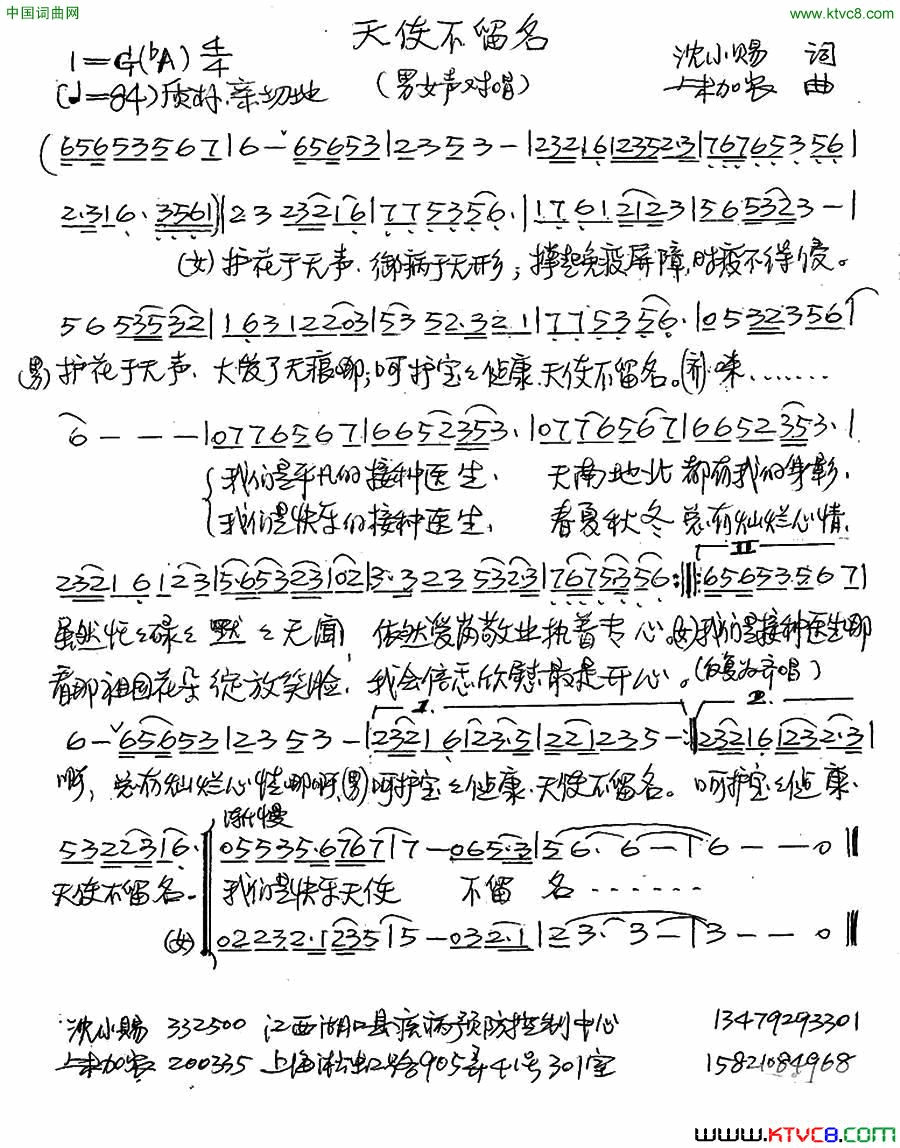 中国词曲网
www.ktvc8.com
天使不留名
1=G(bA) 4/4
(♩=84)质朴、亲切地
(男女声对唱)
沈小赐 词
加农 曲
(656535567|6-ˇ65653|2353-|2321612352·3|7676535 6|
2·316· 3561)|2323216|775356·|176 12123|5653 23-|
(女)护花于无声、御病于无形；撑起免疫屏障,时疫不得侵。
5653532|16312203|5352·321|775356·|0532356|
(男)护花于无声、大爱了无痕哪；呵护宝宝健康、天使不留名。(齐)嗦……
6---|0776567|6652353·|0776567|6652353·|
我们是平凡的接种医生、 天南地北都有我的身影、
我们是快乐的接种医生、 春夏秋冬总有灿烂心情、
II
2321 6123|5·653 2302|3·323 532·3|7675356:|656535·567|
虽然忙忙碌碌默默无闻， 依然爱岗敬业执着专心。(女)我们是接种医生哪
看那祖国花朵绽放笑脸， 我会倍感欣慰最是开心。(反复为齐唱)
1. 2.
6-ˇ65653|2353-|2321 6123·5|221235-:|2321612 32·3|
啊，总有灿烂心情哪啊,(男)呵护宝宝健康、天使不留名。呵护宝宝健康、
渐慢
5322316·|05535·6767|7-065·3|56·6-|6--0‖
天使不留名。 我们是快乐天使 不留 名……
(女) 02232·1235|5-032·1|23·3-|3--0‖
沈小赐 332500 江西湖口县疾病预防控制中心 13479293301
加农 200335 上海淞虹路905弄41号301室 15821084968
www.KTVC8.com